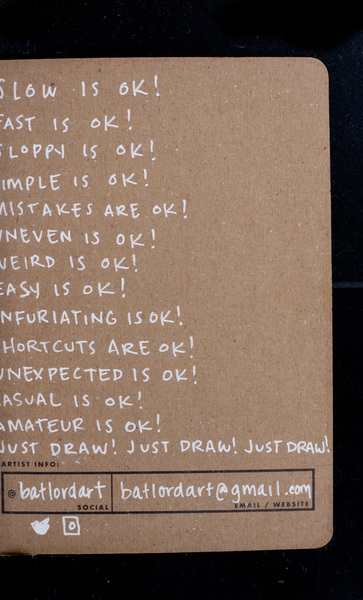 SLOW IS OK!
FAST IS OK!
SLOPPY IS OK!
SIMPLE IS OK!
MISTAKES ARE OK!
UNEVEN IS OK!
WEIRD IS OK!
EASY IS OK!
INFURIATING IS OK!
SHORTCUTS ARE OK!
UNEXPECTED IS OK!
CASUAL IS OK!
AMATEUR IS OK!
JUST DRAW! JUST DRAW! JUST DRAW!
ARTIST INFO:
@batlordart batlordart@gmail.com
SOCIAL EMAIL / WEBSITE